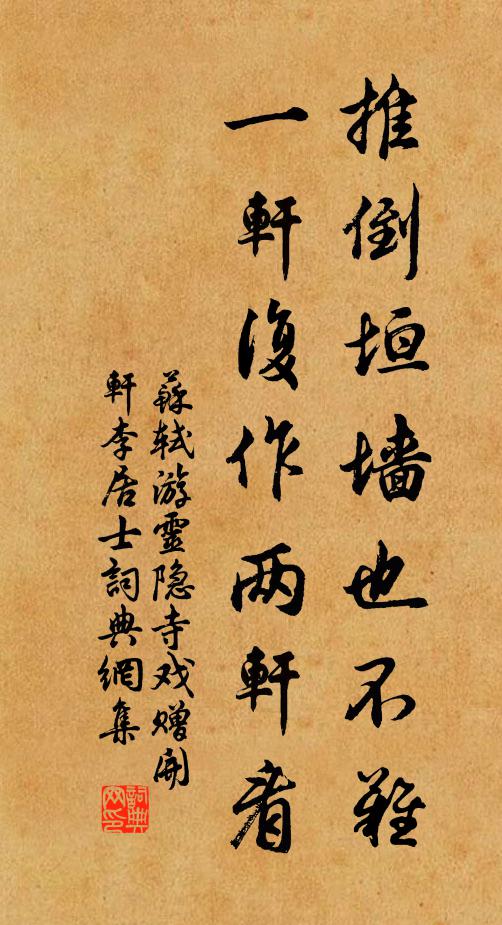 推倒垣墙也不難
一軒復作两軒看
蘇軾游靈隐寺戏赠開
軒李居士詞典網集
詞典網印